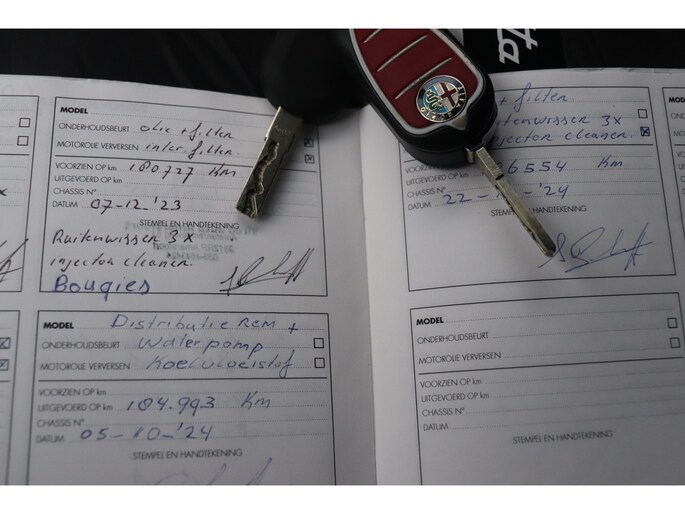 MODEL
ONDERHOUDSBEURT olie + filter
MOTOROLIE VERVERSEN inter. filter
VOORZIEN OP km 180727 Km
UITGEVOERD OP km
CHASSIS N°
DATUM 07-12-'23
STEMPEL EN HANDTEKENING
Ruitenwisser 3x
injector cleaner.
Bougies
MODEL Distributie Rem +
ONDERHOUDSBEURT Waterpomp
MOTOROLIE VERVERSEN Koelvloeistof
VOORZIEN OP km
UITGEVOERD OP km 184.993 Km
CHASSIS N°
DATUM 05-10-'24
STEMPEL EN HANDTEKENING
+ filter
Ruitenwisser 3x
injector cleaner.
6554 Km
UITGEVOERD OP km
CHASSIS N°
DATUM 22- -'24
STEMPEL EN HANDTEKENING
MODEL
ONDERHOUDSBEURT
MOTOROLIE VERVERSEN
VOORZIEN OP km
UITGEVOERD OP km
CHASSIS N°
DATUM
STEMPEL EN HANDTEKENING